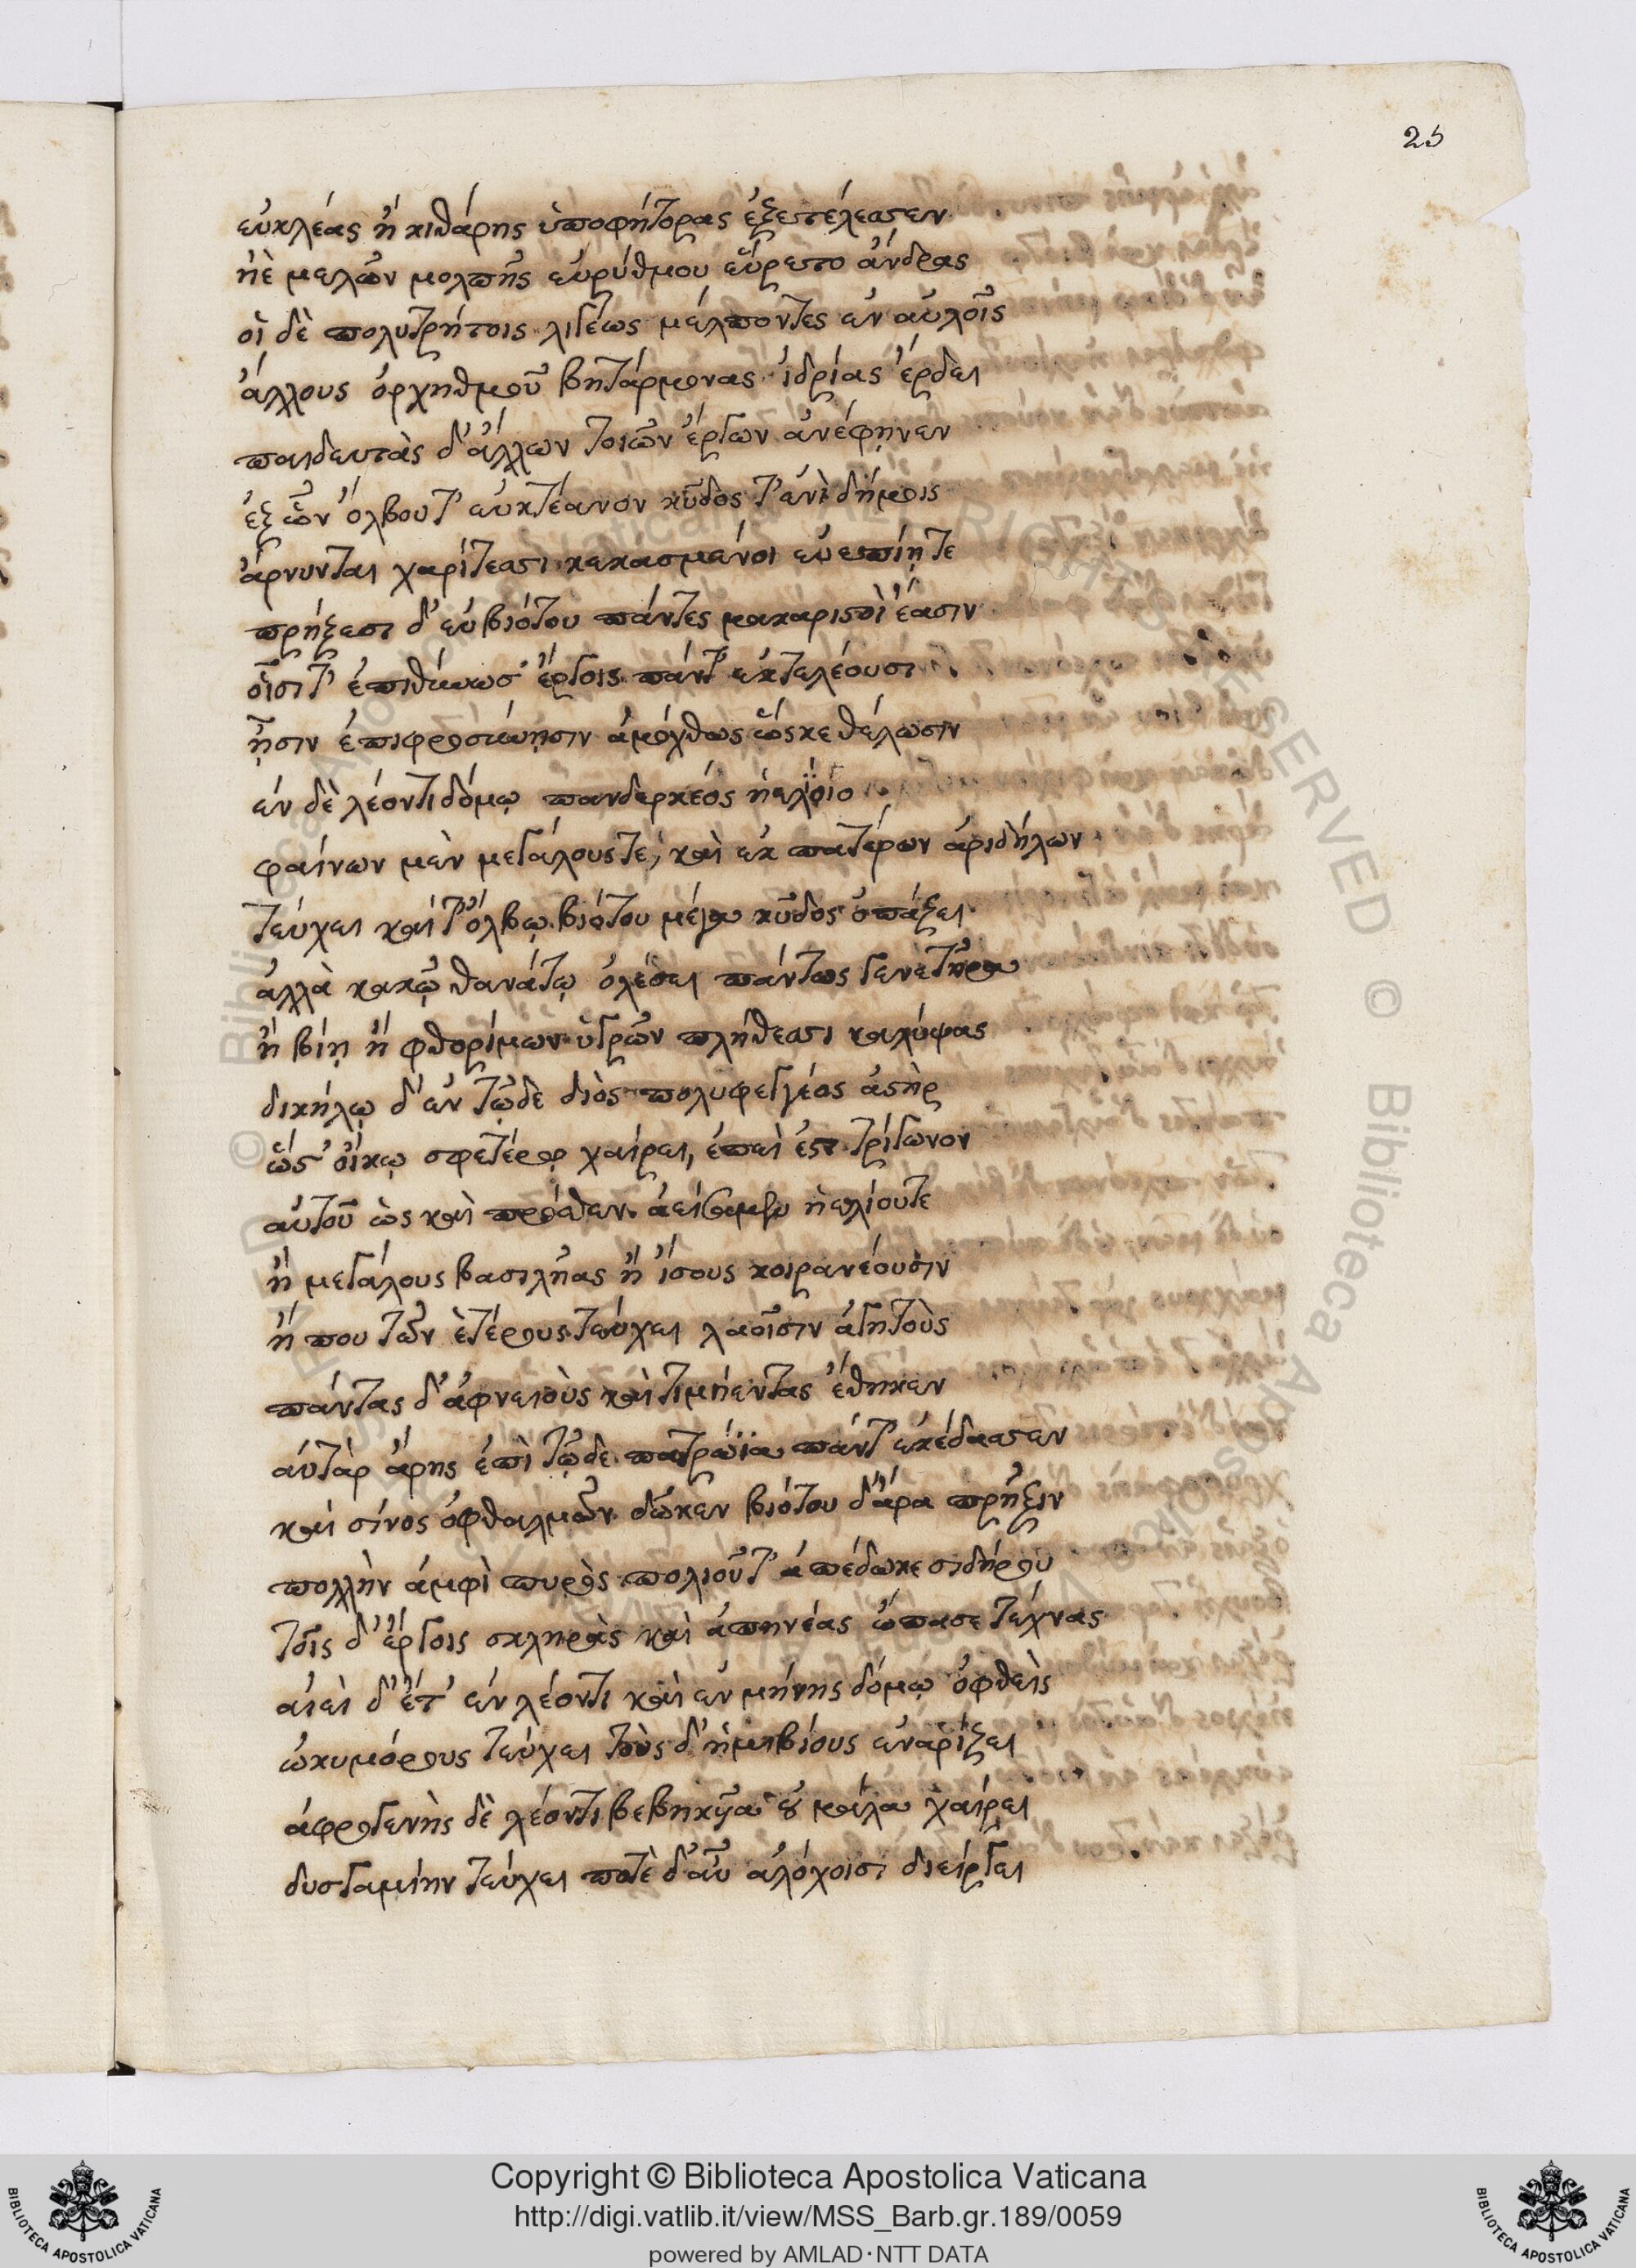 25
εὐκλέας ἢ κιθάρης ὑποφήτορας ἐξετέλεσσεν
ἠὲ μελῶν μολπῆς εὐρύθμου εὕρετο ἄνδρας
οἱ δὲ πολυτρήτοις λιγέως μέλποντες ἐν αὐλοῖς
ἄλλους ὀρχηθμοῦ βητάρμονας ἴδριας ἔρδει
παιδευτὰς δ' ἄλλων τοιῶν ἔργων ἀνέφηνεν
ἐξ ὧν ὄλβου τ' εὐκτέανον κῦδος τ' ἀνὶ δήμοις
ἄρνυνται χαρίτεσσι κεκασμένοι εὐεπίῃ τε
πρήξεσι δ' εὐβιότου πάντες μακαριστοὶ ἔασιν
οἷσι τ' ἔργοις πάντ' ἐκτελέουσι
ᾗσιν ἐπιφροσύνῃσιν ἀμόχθως ὥς κε θέλωσιν
ἐν δὲ λέοντι δόμῳ πανδερκέος ἠελίοιο
φαίνων μὲν μεγάλους τε, καὶ ἐκ πατέρων ἀριδήλων
τεύχει καί τ' ὄλβῳ βιότου μέγα κῦδος ὀπάζει
ἀλλὰ κακῷ θανάτῳ ὀλέσει πάντως γενετῆρα
ἢ βίῃ ἢ φθορίμων ὑγρῶν πλήθεσσι καλύψας
δικήλῳ δ' ἐν τῷδε διὸς πολυφεγγέος ἀστὴρ
ὥς τ' οἴκῳ σφετέρῳ χαίρει, ἐπεὶ ἐστι τρίγωνον
αὐτοῦ ὡς καὶ πρόσθεν ἀείσαμεν ἠελίου τε
ἢ μεγάλους βασιλῆας ἢ ἴσους κοιρανέουσιν
ἤ που τῶν ἑτέρους τεύχει λαοῖσιν ἀγητοὺς
πάντας δ' ἀφνειοὺς καὶ τιμήεντας ἔθηκεν
αὐτὰρ ἄρης ἐπὶ τῷδε πατρώϊα πάντ' ἐκέδασσεν
καὶ σίνος ὀφθαλμῶν δῶκεν βιότου δ' ἄρα πρῆξιν
πολλὴν ἀμφὶ πυρὸς πολιοῦ τ' ἀπέδωκε σιδήρου
τοῖς δ' ἔργοις σκληρὰς καὶ ἀπηνέας ὤπασε τέχνας
αἰεὶ δ' ἔτ' ἐν λέοντι καὶ ἐν μήνης δόμῳ ὀφθεὶς
ὠκυμόρους τεύχει τοὺς δ' ἡμιβίους ἐναρίζει
ἀφρογενὴς δὲ λέοντι βεβηκυῖα οὐ μάλα χαίρει
δυσγαμίην τεύχει ποτὲ δ' αὖ ἀλόχοισι διείργει
Copyright © Biblioteca Apostolica Vaticana
http://digi.vatlib.it/view/MSS_Barb.gr.189/0059
powered by AMLAD·NTT DATA
BIBLIOTECA APOSTOLICA VATICANA
BIBLIOTECA APOSTOLICA VATICANA